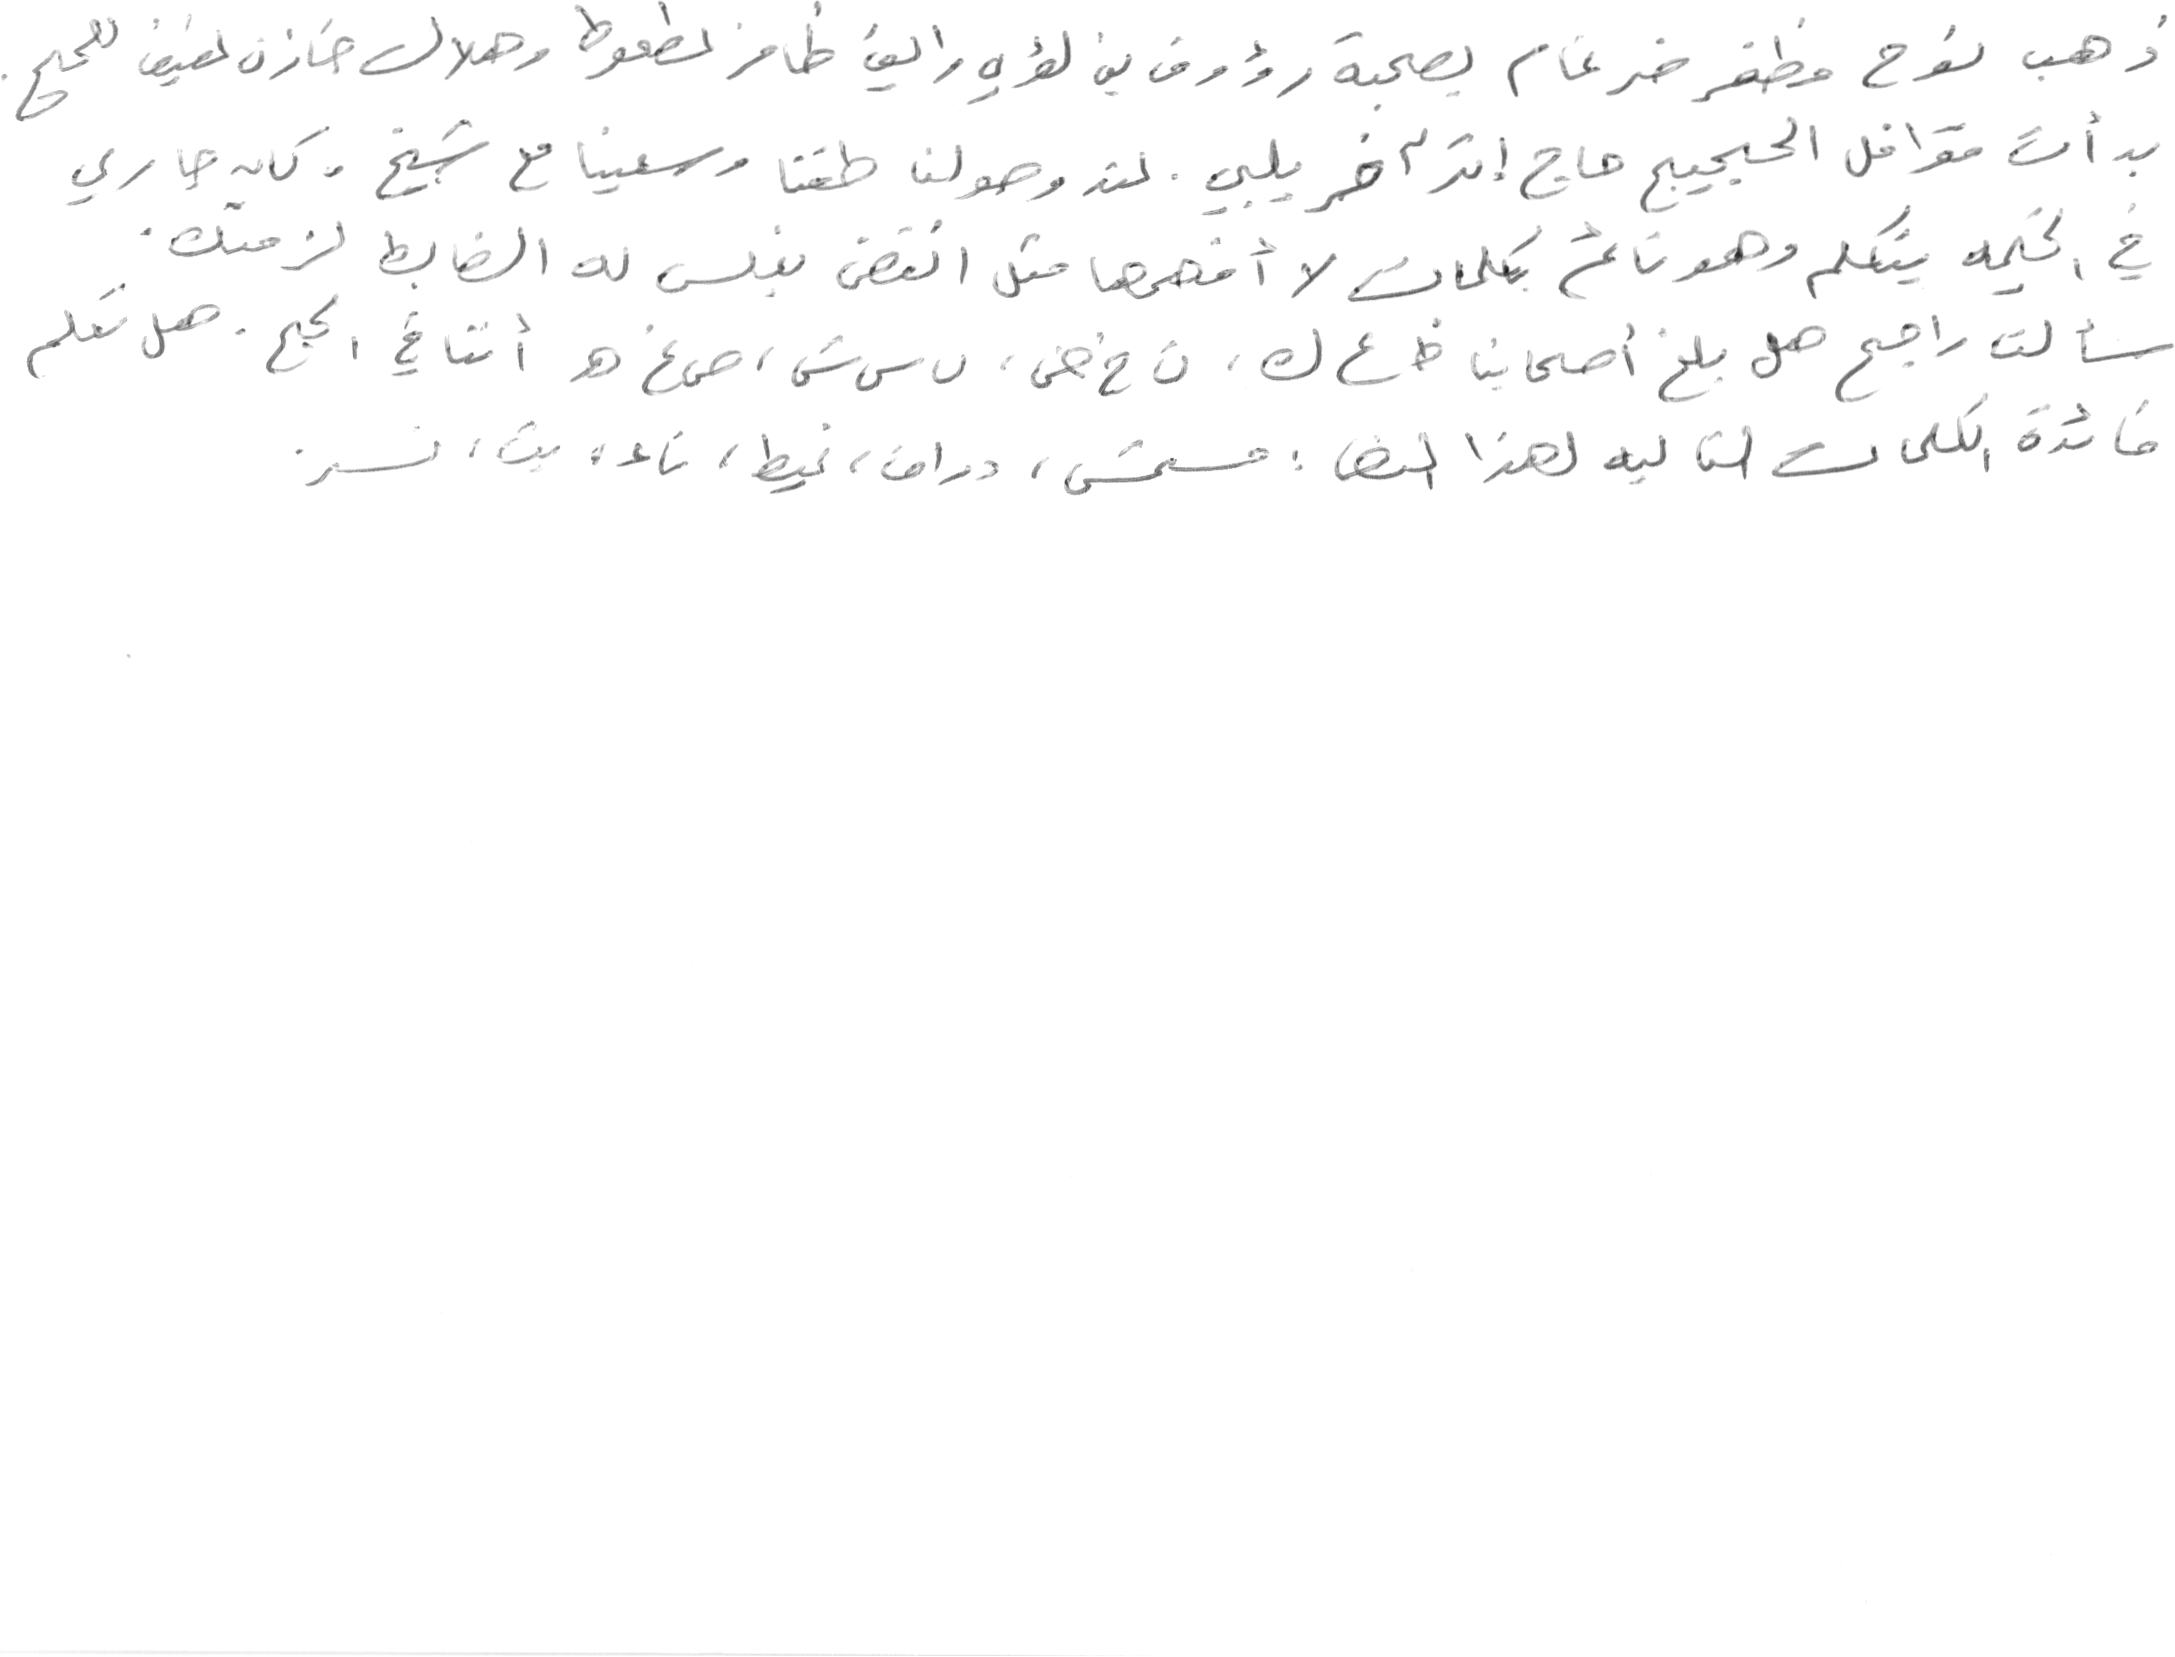 ذهب نوح مظفر ضرغام بصحبة رؤوف بن لؤي رائف ظافر نطعوط وهلال جازن لضيف للحج.
بدأت قوافل الحجيج حاج إثر آخر يلبي. لدى وصولنا طفنا وسعينا مع شيخ وكان جاري
في الخيمه يتكلم وهو نائم بكلمات لا أفهمها مثل انقض بغلس له الضابط لزميتك.
سألت راجح هل بلغ أصحابنا ظ ع ك، ن خ ض، ل س ش، ص غ هـ أثنا في الحج. هل تعلم
فائدة الكلمات التاليه لهذا النص: مستمش، دراق، غيط، ناء، بث، نسر.